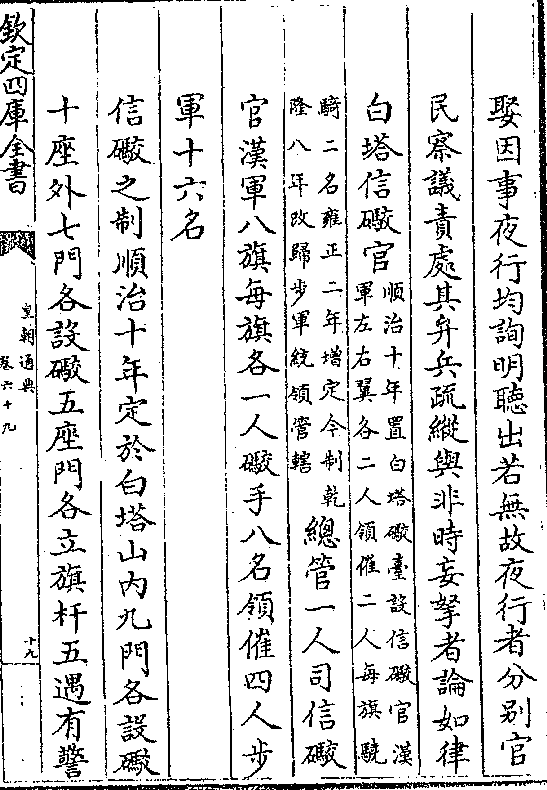 娶因事夜行均詢明聽出若無故夜行者分别官
民察議責處其弁兵疏縱與非時妄拏者論如律
白塔信礮官
順治十年置白塔礮臺設信礮官漢
軍左右翼各二人領催二人每旗驍
騎二名雍正二年增定今制乾
隆八年改歸步軍統領管轄
總管一人司信礮
官漢軍八旗每旗各一人礮手八名領催四人步
軍十六名
信礮之制順治十年定於白塔山内九門各設礮
十座外七門各設礮五座門各立旗杆五遇有警
欽定四庫全書
皇朝通典
卷六十九
十九